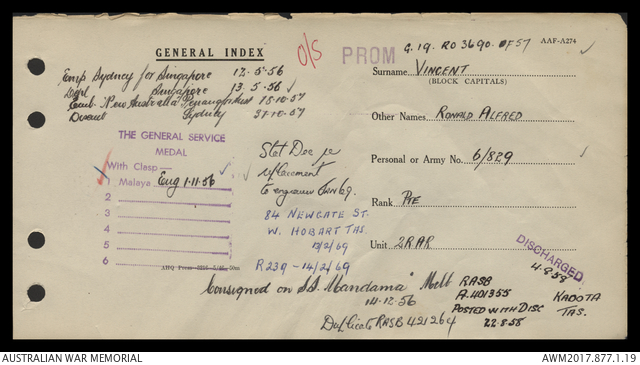 O/S
PROM
G.19. RO 3690. OF 57
AAF-A274
GENERAL INDEX
Emp Sydney for Singapore 12-5-56
Singapore 13.5.56
Emb. New Australia Penang 15-10-57
Sydney 27-10-57
Surname VINCENT
(BLOCK CAPITALS)
Other Names RONALD ALFRED
Personal or Army No. 6/829
Rank PTE
Unit 2RAR
THE GENERAL SERVICE
MEDAL
With Clasp—
1 Malaya Eng 1-11-56
2
3
4
5
6
AHQ Press
Stat Dec re
replacement
84 NEWGATE ST.
W. HOBART TAS.
12/2/69
R239 - 14/2/69
DISCHARGED
4-8-58
KABOTA
TAS.
Consigned on S.S. "Mandama" Melb
14-12-56
RASB
A.401355
POSTED WITH DISC
22-8-58
Duplicate RASB 421264
AUSTRALIAN WAR MEMORIAL
AWM2017.877.1.19